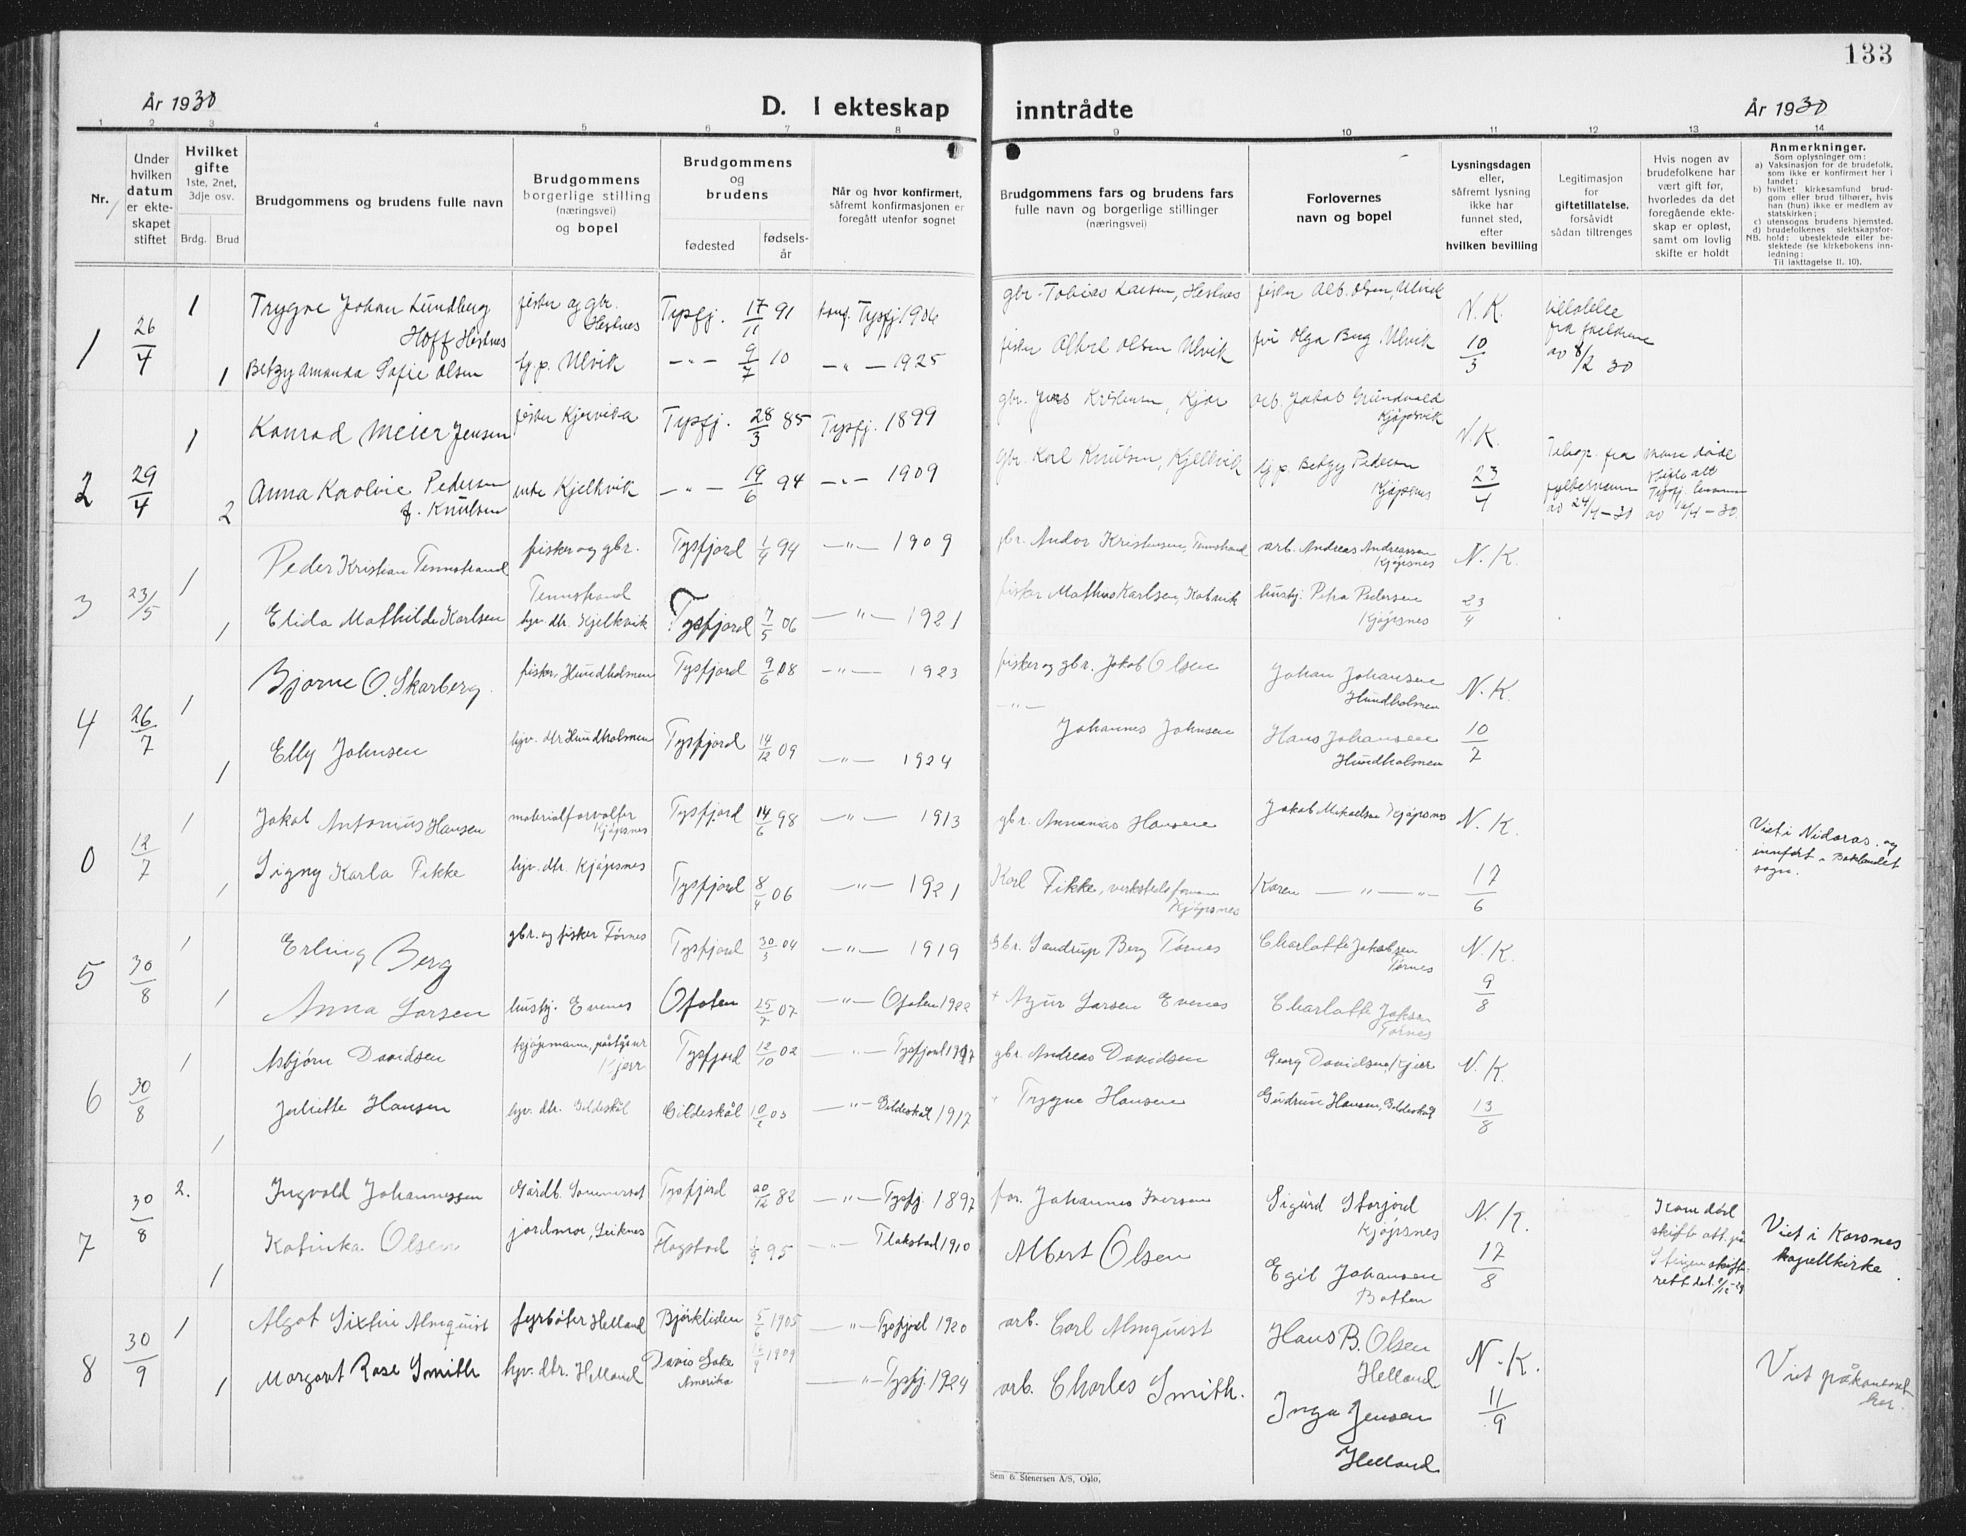 133
År 1930
D. I ekteskap inntrådte
År 1930
1 2 3 4 5 6 7 8 9 10 11 12 13 14
Nr.
Under hvilken datum er ekteskapet stiftet
Hvilket gifte
1ste, 2net, 3dje osv.
Brdg. Brud
Brudgommens og brudens fulle navn
Brudgommens borgerlige stilling (næringsvei) og bopel
Brudgommens og brudens
fødested
fødselsår
Når og hvor konfirmert, såfremt konfirmasjonen er foregått utenfor sognet
Brudgommens fars og brudens fars fulle navn og borgerlige stillinger (næringsvei)
Forlovernes navn og bopel
Lysningsdagen eller, såfremt lysning ikke har funnet sted, efter hvilken bevilling
Legitimasjon for giftetillatelse, forsåvidt sådan tiltrenges
Hvis nogen av brudefolkene har vært gift før, hvorledes da det foregående ekteskap er opløst, samt om lovlig skifte er holdt
Anmerkninger.
Som oplysninger om:
a) Vaksinasjon for de brudefolk, som ikke er konfirmert her i landet;
b) hvilket kirkesamfund brudgom eller brud tilhører, hvis han (hun) ikke er medlem av statskirken;
c) utensogns brudens hjemsted.
d) brudefolkenes slektskapsforhold: ubeslektede eller beslektede (se kirkebokens innledning:
NB.
Til iakttagelse II. 10).
1 26/4 1 Trygve Johan Lundberg Hoff Hestnes fisker og gbr. Hestnes Tysfj. 17/11 91 konf. Tysfj 1906 gbr. Tobias Larsen, Hestnes fisker Alb. Olsen, Ulvik N. K. 10/3 tillatelse fra foreldrene av 8/2 30
1 Betzy Amanda Sofie Olsen tj.p. Ulvik —"— 9/7 10 —"— 1925 fisker Albert Olsen Ulvik frk Olga Berg Ulvik
2 29/4 1 Konrad Meier Jensen fisker Kjørvika Tysfj. 28/3 85 Tysfj. 1899 gbr. Jens Kristensen, Kjør arb. Jakob Grundvald Kjøpsvik N. K. 23/4
2 Anna Karolvie Pedersen f. Knutsen enke Kjelkvik —"— 19/6 94 —"— 1909 gbr. Karl Knutsen, Kjelkvik tj.p. Betzy Pedersen Kjøpsnes fra fylkesmann av 24/4-30 mann døde Skifteatt Tysfj. lensmann av /4-30
3 23/5 1 Peder Kristian Tennstrand fisker og gbr. Tennstrand Tysfjord 1/4 94 —"— 1909 gbr. Andor Kristensen, Tennstrand arb. Andreas Andreassen Kjøpsnes N. K. 23/4
1 Elida Mathilde Karlsen hjv. dtr. Kjelkvik Tysfjord 7/5 06 —"— 1921 fisker Mathias Karlsen, Kobvik hustj. Petra Pedersen Kjøpsnes
4 26/7 1 Bjarne O. Skarberg. fisker, Hundholmen Tysfjord 9/6 08 —"— 1923 fisker og gbr. Jakob Olsen Johan Johansen Hundholmen N. K. 10/7
1 Elly Johnsen hjv. dtr Hundholmen Tysfjord 14/12 09 —"— 1924 —"— Johannes Johnsen Hans Johansen Hundholmen
0 12/7 1 Jakob Antonius Hansen materialforvalter Kjøpsnes Tysfjord 14/6 98 —"— 1913 gbr. Annanias Hansen Jakob Mikaelsen Kjøpsnes N. K. 17/6 Viet i Nidaros og innført i Baklandet sogn.
1 Signy Karla Fikke hjv. dtr. Kjøpsnes Tysfjord 8/4 06 —"— 1921 Karl Fikke, verkstedsformann Kjøpsnes Karen —"—"—
5 30/8 1 Erling Berg gbr. og fisker Tørnes Tysfjord 30/3 04 —"— 1919 Gbr. Sandrup Berg Tørnes Charlotte Jakobsen Tørnes N. K. 9/8
1 Anna Larsen hustj. Evenes Ofoten 25/7 07 —"— Ofoten 1922 + Agur Larsen Evenes Charlotte Jakobsen Tørnes
6 30/8 1 Asbjørn Davidsen kjøpmann, Kjørr Tysfjord 12/10 02 —"— Tysfjord 1917 gbr. Andreas Davidsen Georg Davidsen, Kjørr N. K. 13/8
1 Juliette Hansen hjv. dtr. Gildeskål Gildeskål 03 —"— Gildeskål 1917 + Trygve Hansen Gudrun Hansen, Gildeskål
7 30/8 2. Ingvald Johannessen Gårdb. Sommerset Tysfjord 20/12 82 —"— Tysfj. 1897 for. Johannes Iversen Sigurd Storjord Kjøpsnes N. K. 17/8 Kone død skifte att. på Steigen skifterett dat. /12-29 Viet i Korsnes kapellkirke.
1 Katinka Olsen jordmor, Leiknes Flagstad 95 —"— Flakstad 1910 Albert Olsen Egil Johansen Botten
8 30/9 1 Algot Sixten Almquist fyrbøter Helland Bjørkliden 5/6 1905 —"— Tysfjord 1920 arb. Carl Almquist Hans B. Olsen Helland N. K. 11/9 Viet på kontoret her.
1 Margaret Rose Smith hjv. dtr. Helland Davis Lake Amerika 1909 —"— Tysfj 1924 arb. Charles Smith. Inga Jensen Helland
Sem & Stenersen A/S, Oslo.